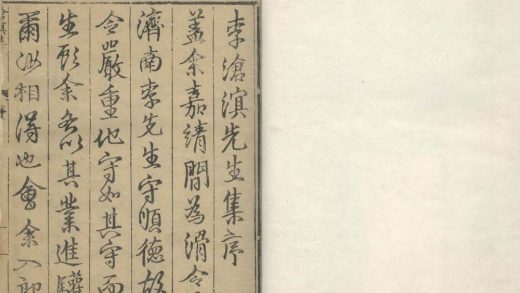 李滄溟先生集序
蓋余嘉靖間為滑令
濟南李先生守順德故
令嚴重他守如其守而
生余以其業進驩
爾汝相得也會余入郎